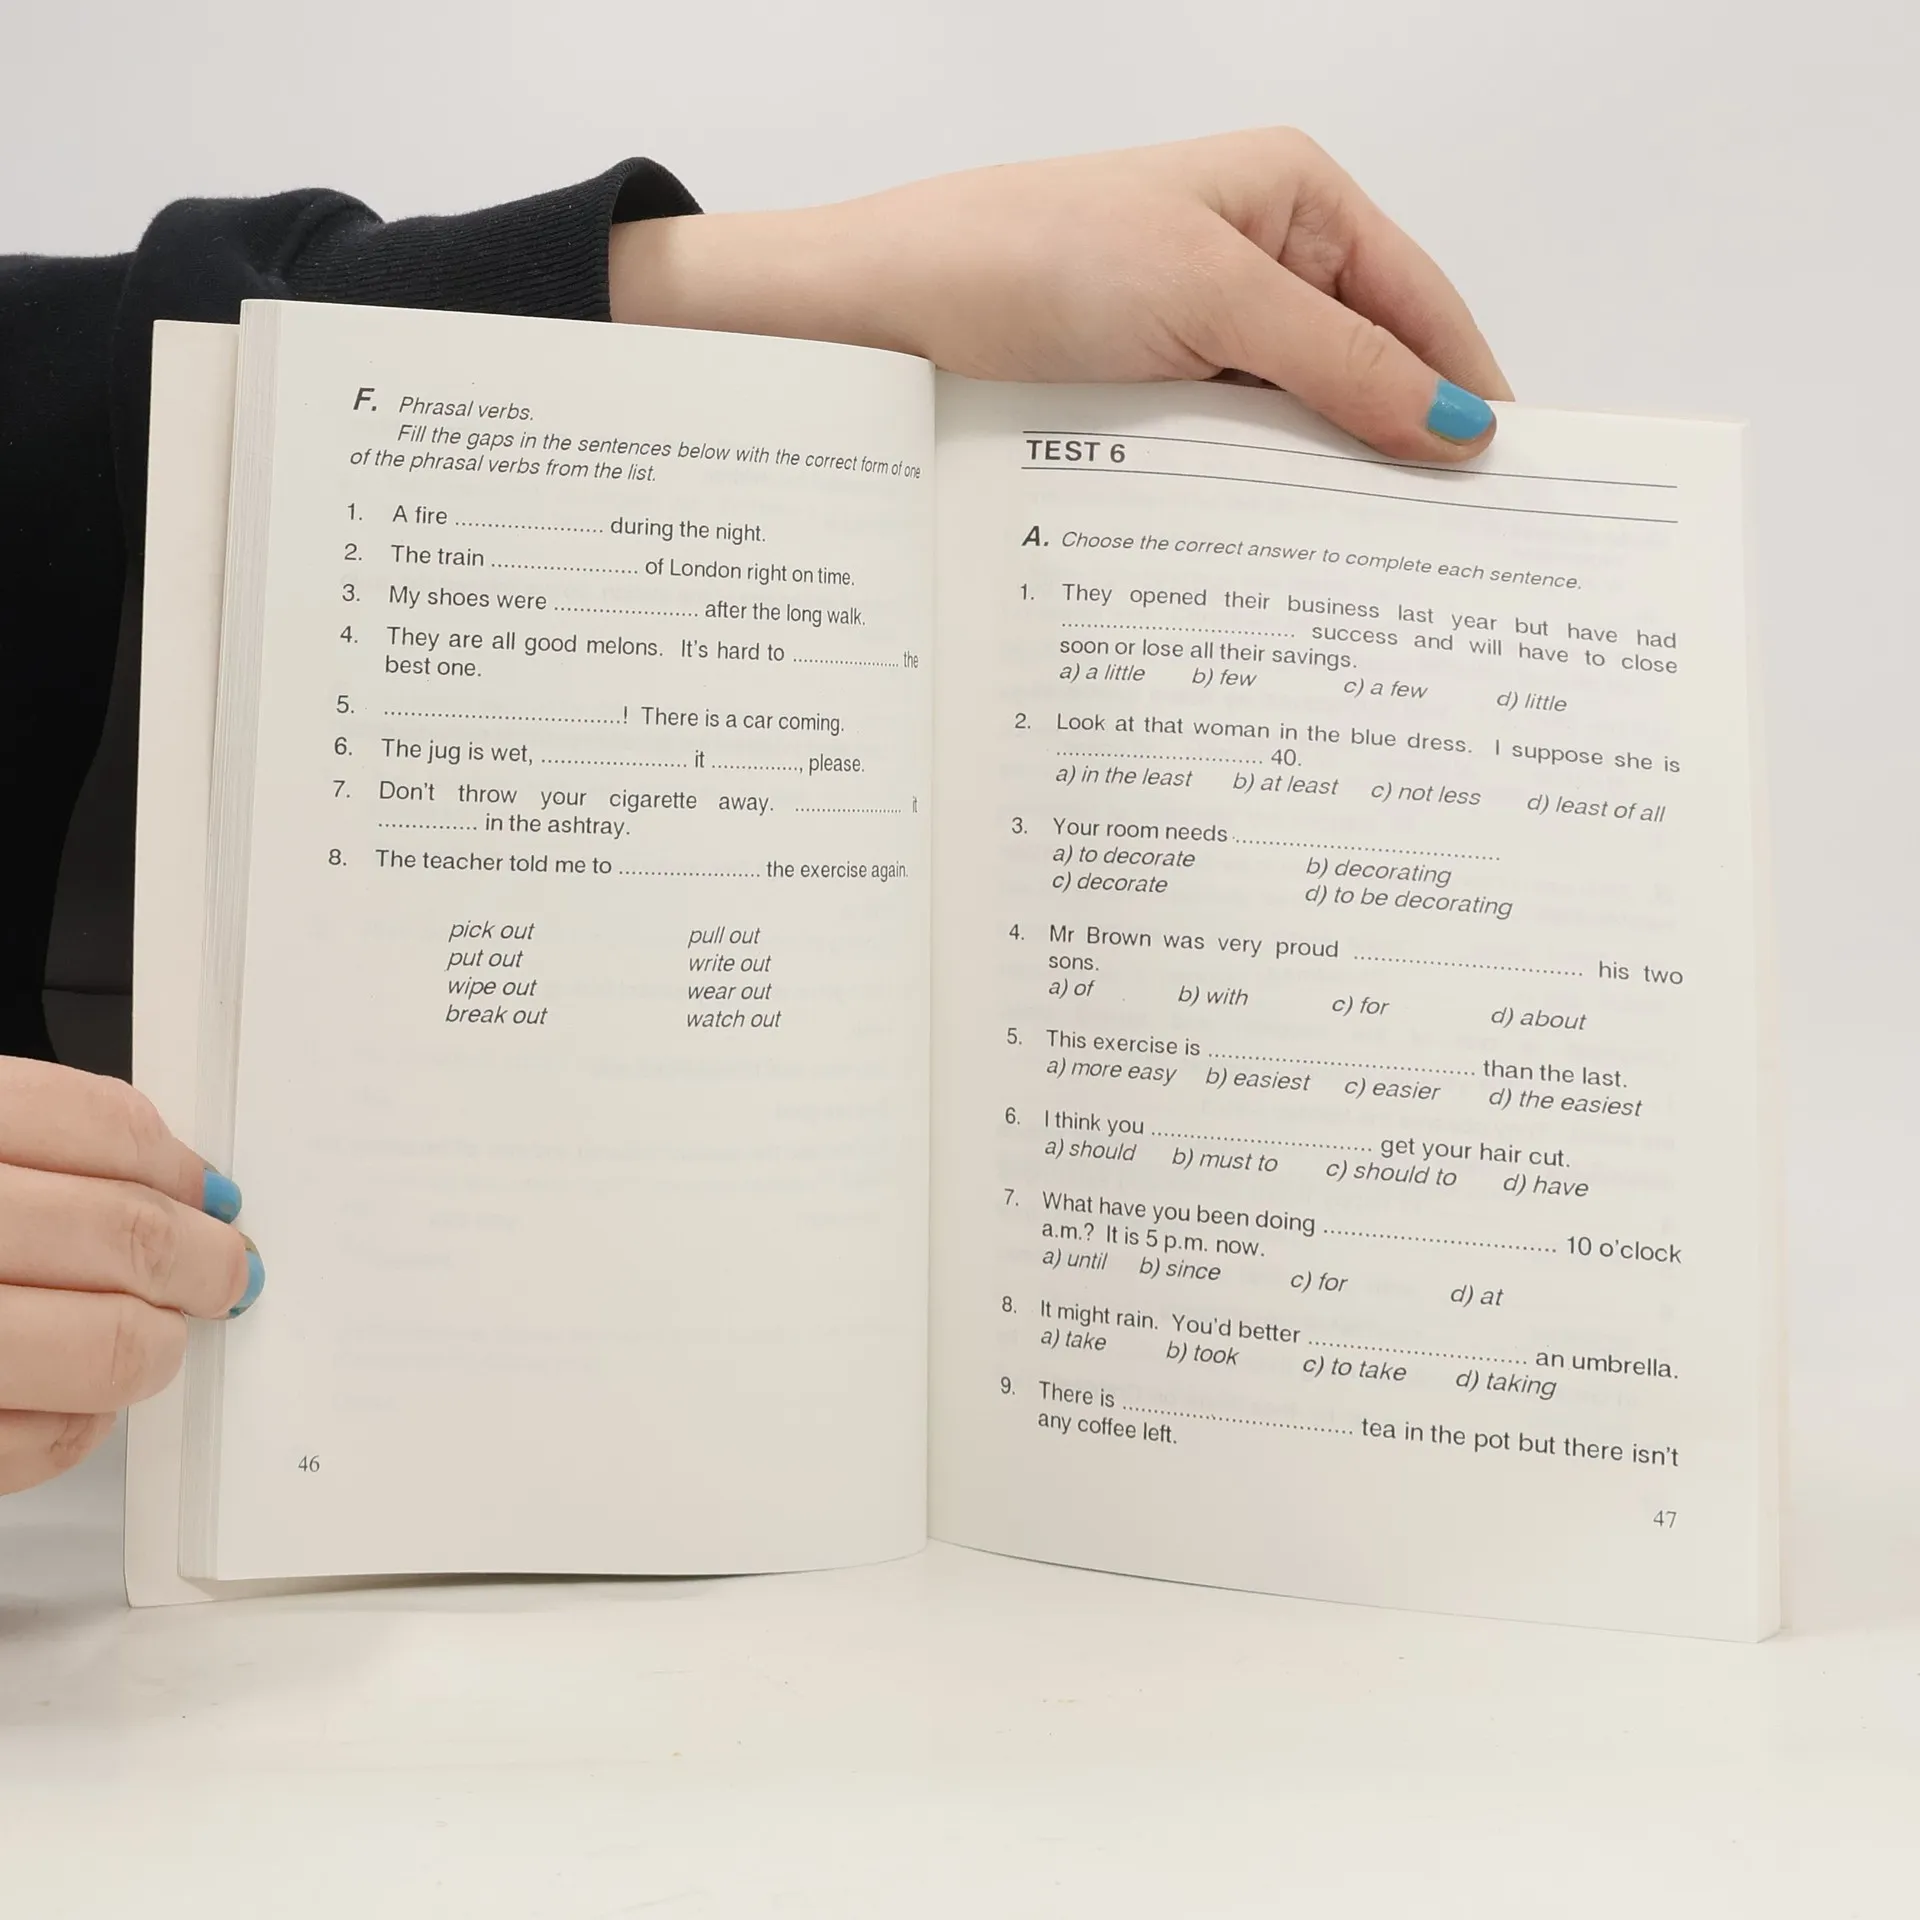 F. Phrasal verbs.
Fill the gaps in the sentences below with the correct form of one
of the phrasal verbs from the list.
1. A fire ........................ during the night.
2. The train ........................ of London right on time.
3. My shoes were ........................ after the long walk.
4. They are all good melons. It's hard to ........................ the
best one.
5. .....................................! There is a car coming.
6. The jug is wet, ........................ it .............., please.
7. Don't throw your cigarette away. ........................ it
................ in the ashtray.
8. The teacher told me to ........................ the exercise again.
pick out pull out
put out write out
wipe out wear out
break out watch out
46
TEST 6
A. Choose the correct answer to complete each sentence.
1. They opened their business last year but have had
..................................... success and will have to close
soon or lose all their savings.
a) a little b) few c) a few d) little
2. Look at that woman in the blue dress. I suppose she is
................................. 40.
a) in the least b) at least c) not less d) least of all
3. Your room needs ..........................................
a) to decorate b) decorating
c) decorate d) to be decorating
4. Mr Brown was very proud ..................................... his two
sons.
a) of b) with c) for d) about
5. This exercise is .......................................... than the last.
a) more easy b) easiest c) easier d) the easiest
6. I think you ................................... get your hair cut.
a) should b) must to c) should to d) have
7. What have you been doing ..................................... 10 o'clock
a.m.? It is 5 p.m. now.
a) until b) since c) for d) at
8. It might rain. You'd better ................................... an umbrella.
a) take b) took c) to take d) taking
9. There is ..................................... tea in the pot but there isn't
any coffee left.
47